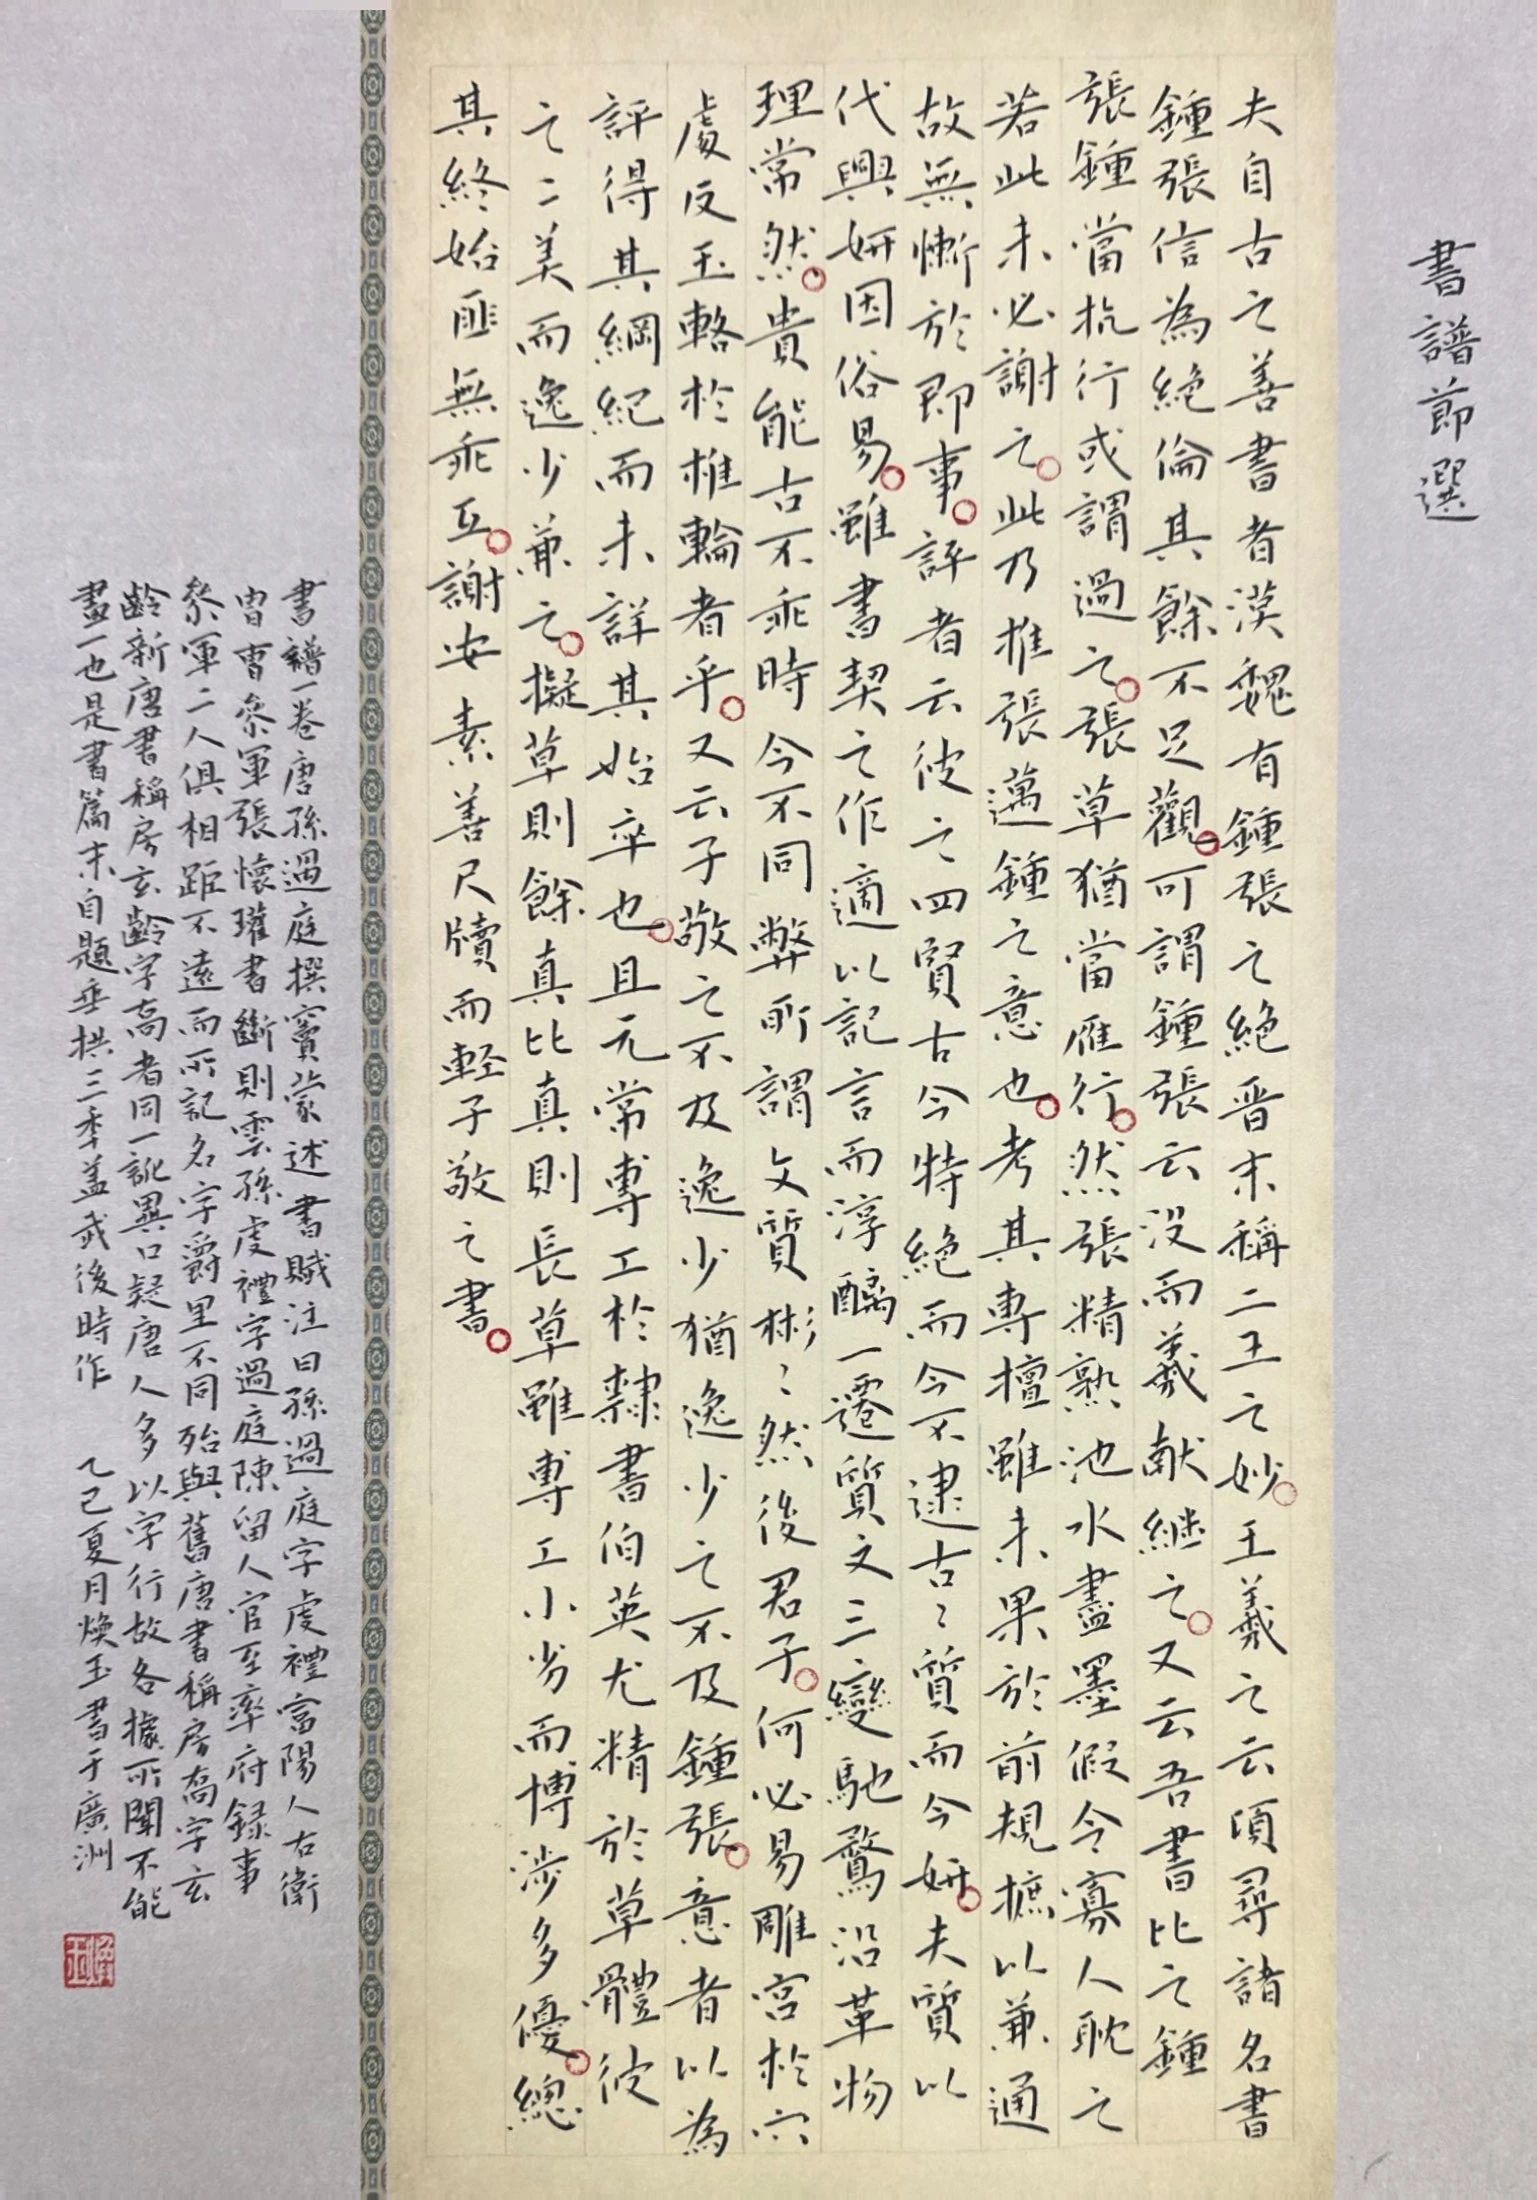 書譜節選
夫自古之善書者漢魏有鍾張之絕晉末稱二王之妙王羲之云頃尋諸名書
鍾張信為絕倫其餘不足觀可謂鍾張云沒而羲獻繼之又云吾書比之鍾
張鍾當抗行或謂過之張草猶當雁行然張精熟池水盡墨假令寡人耽之
若此未必謝之此乃推張邁鍾之意也考其專擅雖未果於前規摭以兼通
故無慚於即事評者云彼之四賢古今特絕而今不逮古〻質而今妍夫質以
代興妍因俗易雖書契之作適以記言而淳醨一遷質文三變馳騖沿革物
理常然貴能古不乖時今不同弊所謂文質彬〻然後君子何必易雕宮於穴
處反玉輅於椎輪者乎又云子敬之不及逸少猶逸少之不及鍾張意者以為
評得其綱紀而未詳其始卒也且元常專工於隸書伯英尤精於草體彼
之二美而逸少兼之擬草則餘真比真則長草雖專工小劣而博涉多優總
其終始匪無乖互謝安素善尺牘而輕子敬之書
書譜一卷唐孫過庭撰竇蒙述書賦注曰孫過庭字虔禮富陽人右衛
冑曹參軍張懷瓘書斷則雲孫虔禮字過庭陳留人官至率府録事
參軍二人俱相距不遠而所記名字爵里不同殆與舊唐書稱房喬字玄
齡新唐書稱房玄齡字喬者同一訛異口疑唐人多以字行故各據所聞不能
盡一也是書篇末自題垂拱三年蓋武後時作 乙巳夏月煥玉書于廣洲
煥玉